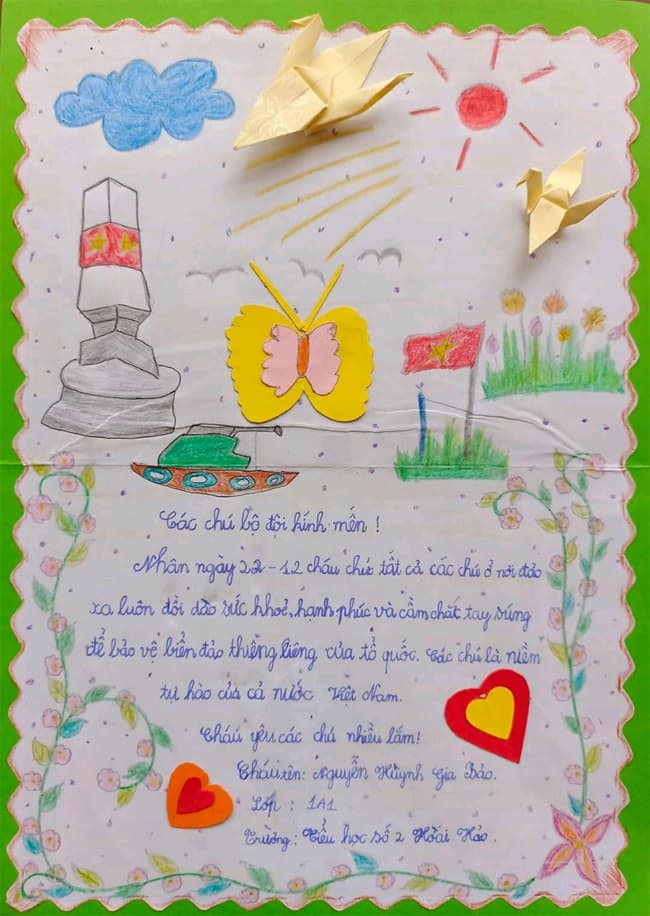 Các chú bộ đội kính mến !
Nhân ngày 22 - 12 cháu chúc tất cả các chú ở nơi đảo
xa luôn dồi dào sức khoẻ, hạnh phúc và cầm chắt tay súng
để bảo vệ biển đảo thiêng liêng của tổ quốc. Các chú là niềm
tự hào của cả nước Việt Nam.
Cháu yêu các chú nhiều lắm!
Cháu tên: Nguyễn Huỳnh Gia Bảo.
Lớp : 1A1
Trường : Tiểu học số 2 Hoài Hảo.